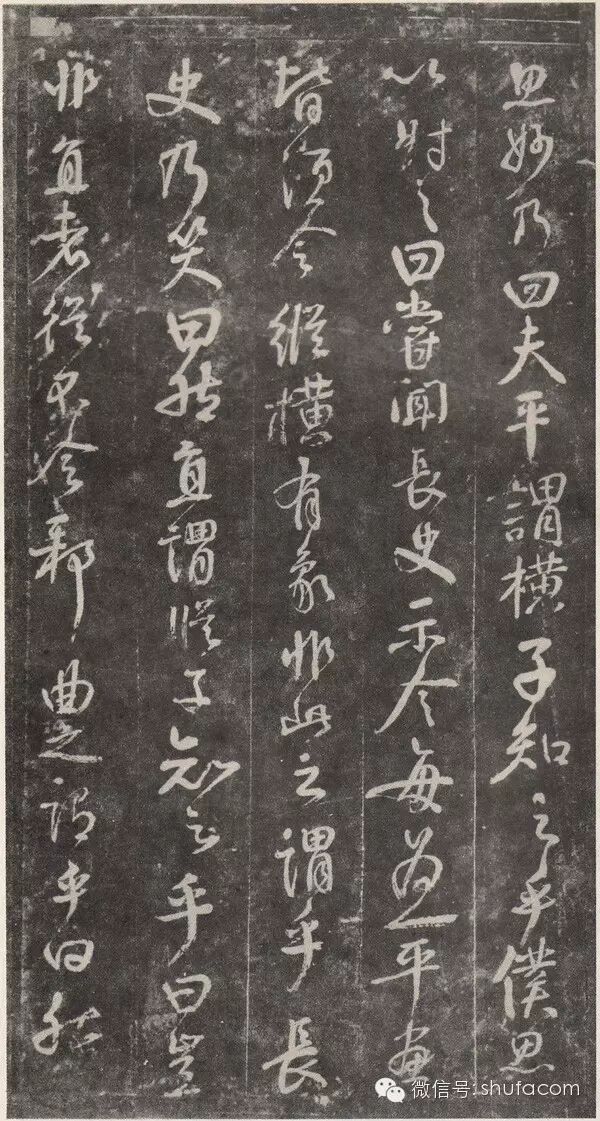 思妙乃曰夫平謂橫子知之乎僕思
以對之曰嘗聞長史示令每為一平畫
皆須令縱橫有象非此之謂乎長
史乃笑曰然直謂縱子知之乎曰豈
非直者縱不令邪曲之謂乎曰然
微信号: shufacom